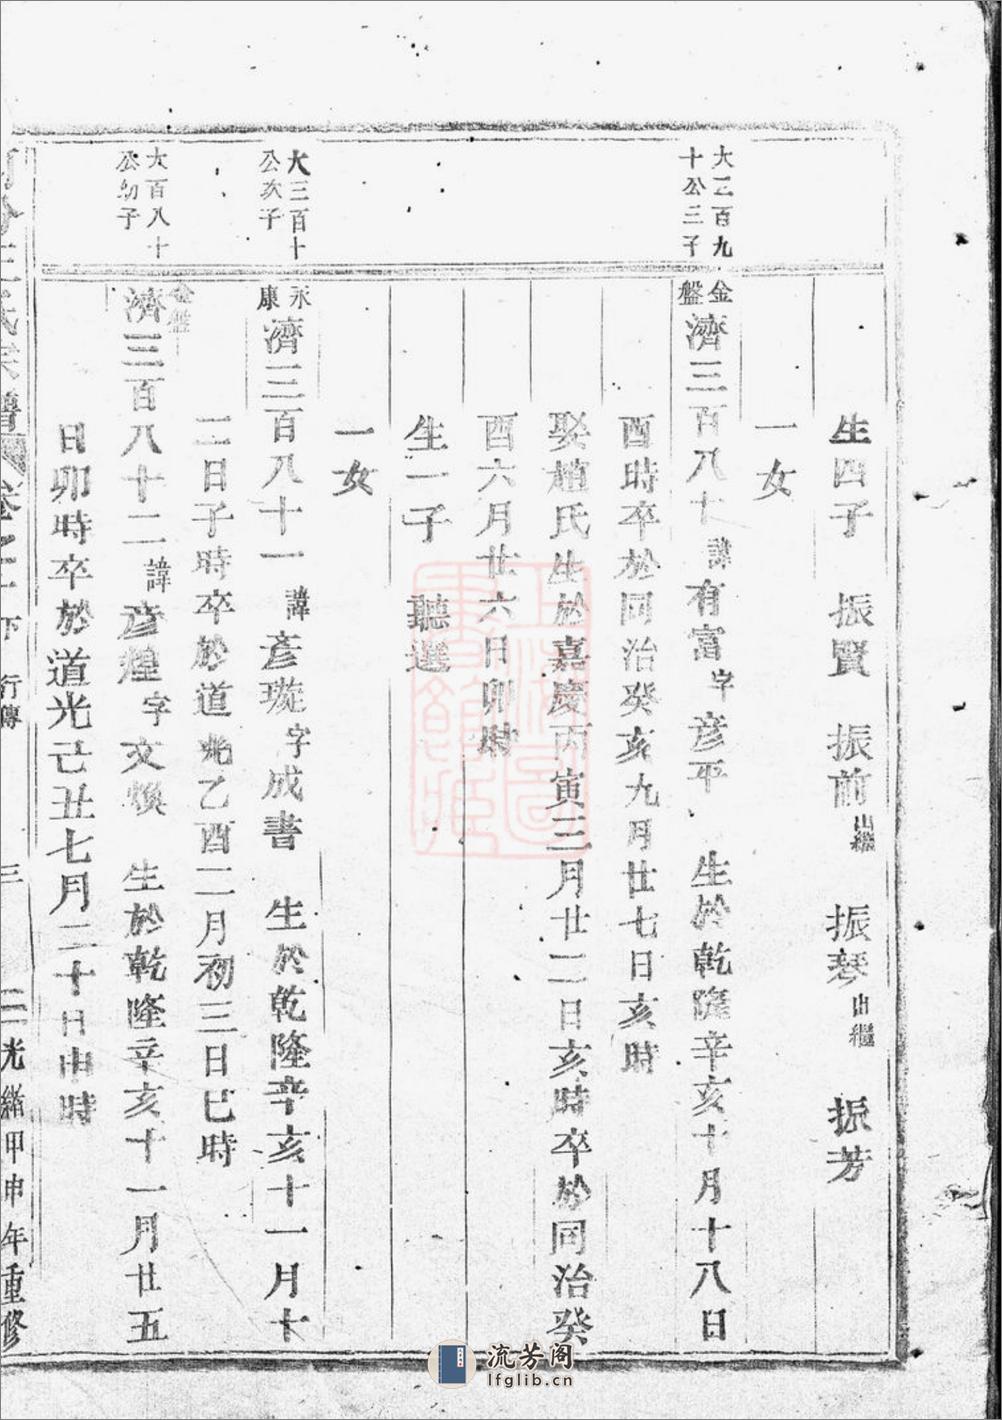 生四子 振賢 振前出繼 振琴出繼 振芳
一女
大三百九
十公三子
金盤
濟三百八十諱有富字彦平 生於乾隆辛亥十月十八日
酉時卒於同治癸亥九月廿七日亥時
娶趙氏生於嘉慶丙寅三月廿二日亥時卒於同治癸
酉六月廿六日卯時
生一子 聽選
一女
大三百十
公次子
永康
濟三百八十一諱彥璇字成書 生於乾隆辛亥十一月十
二日子時卒於道光乙酉二月初三日巳時
大百八十
公幼子
金盤
濟三百八十二諱彦煌字文煥 生於乾隆辛亥十一月廿五
日卯時卒於道光己丑七月二十日申時
氏宗譜 卷之二下 行傳 三 光緒甲申年重修
流芳阁
lfglib.cn